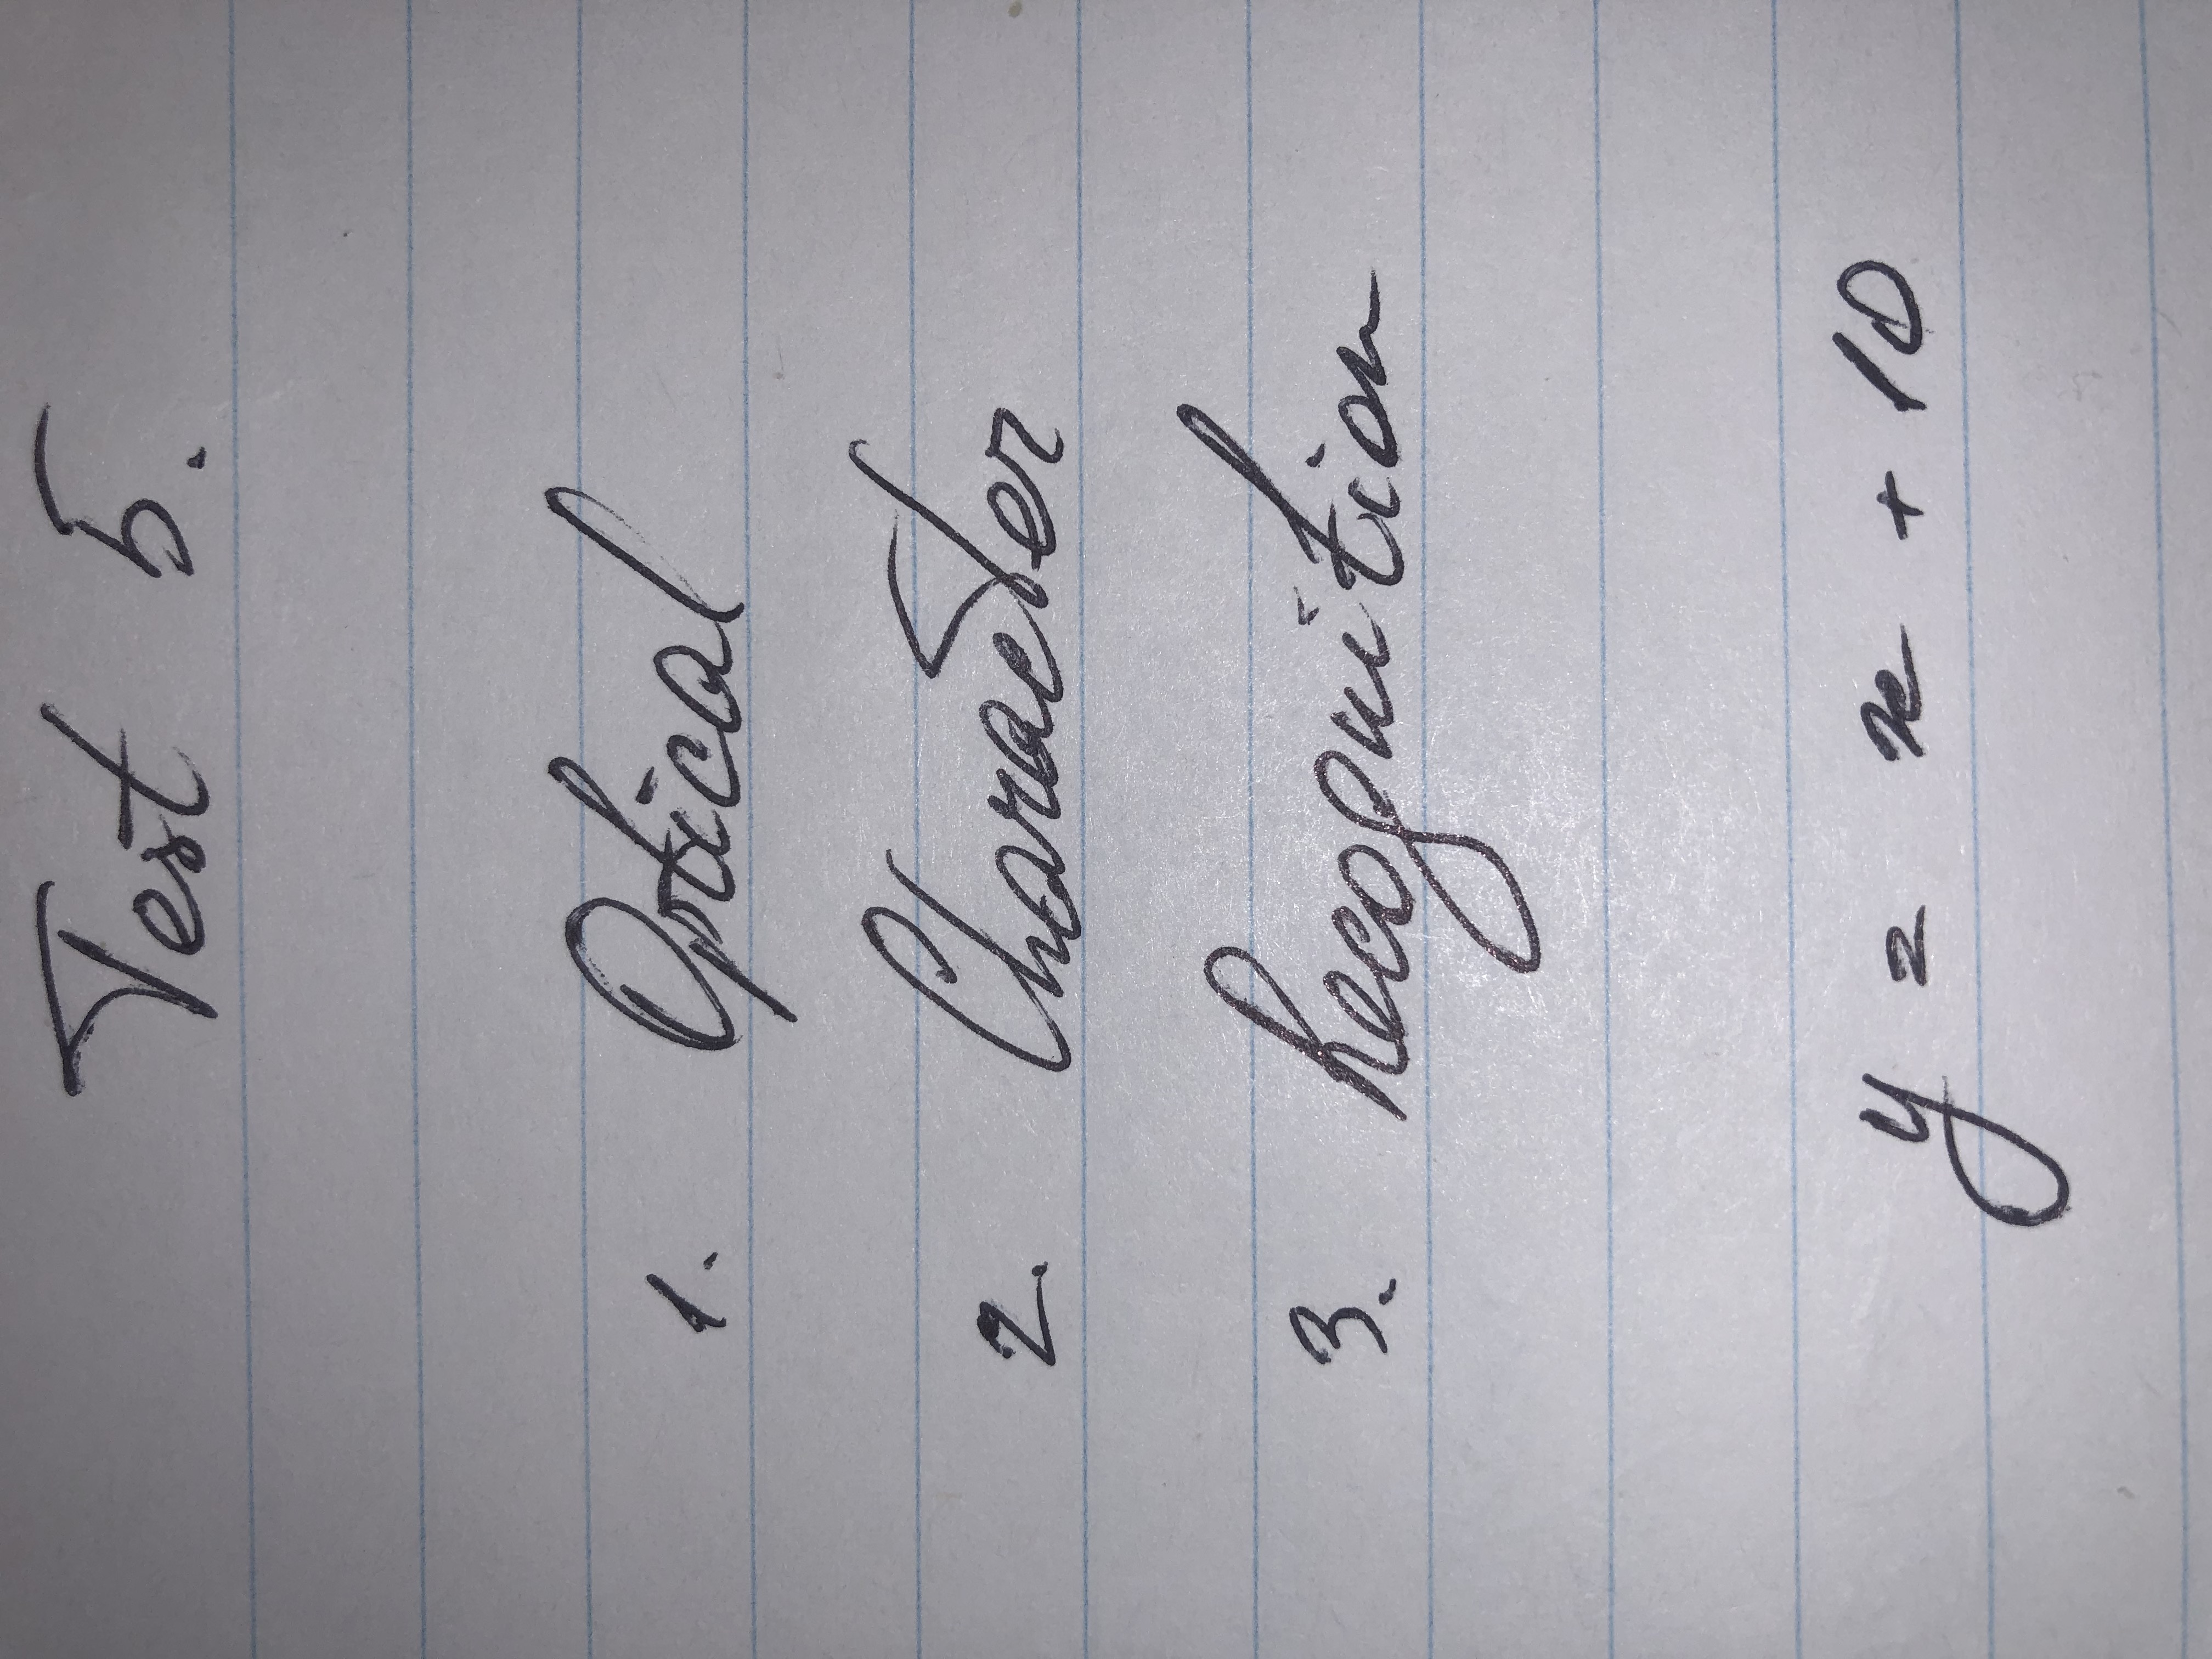 Test 5.
1. Optical
2. Character
3. Recognition
y = x + 10